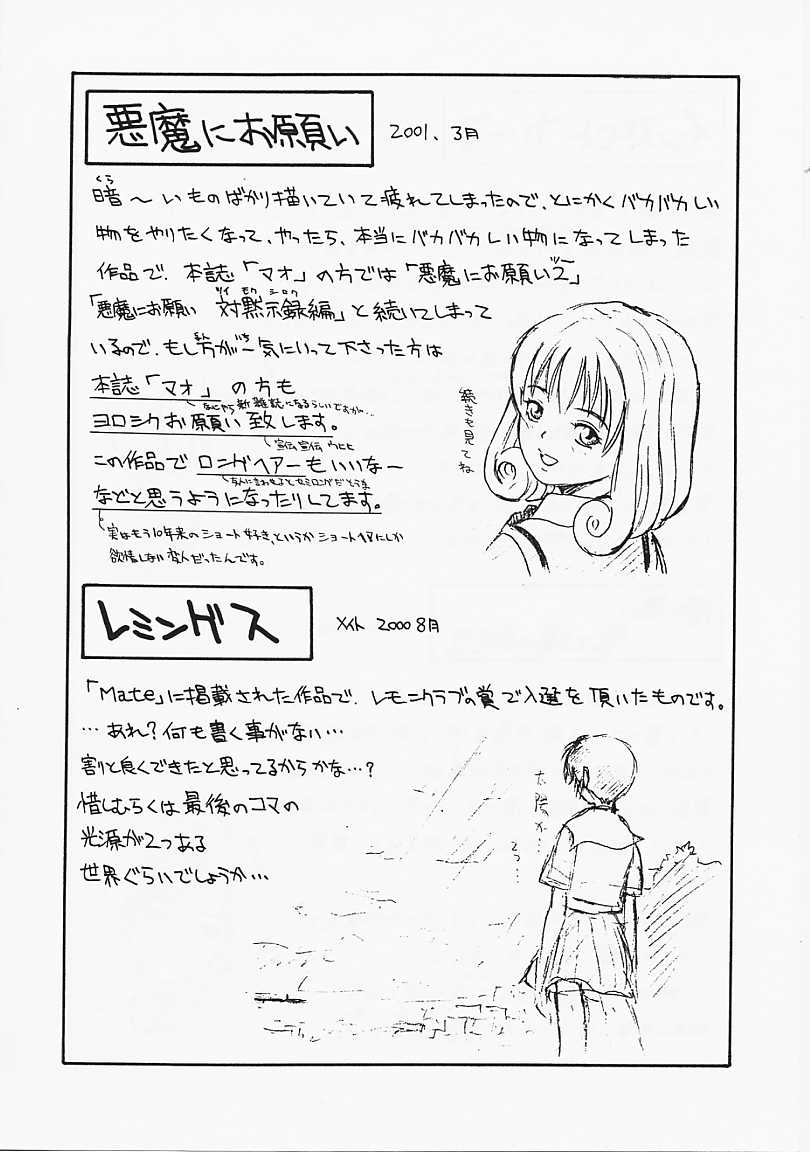 悪魔にお願い
2001. 3月
くら
暗〜いものばかり描いていて疲れてしまったので、とにかくバカバカしい
物をやりたくなって、やったら、本当にバカバカしい物になってしまった
作品で、本誌「マオ」の方では「悪魔にお願い2」
ツー
「悪魔にお願い 対黙示録編」と続いてしまって
ツイ モク シロク
いるので、もし万が一気にいって下さった方は
まん いち
本誌「マオ」の方も
なにやら新雑誌になるらしいですが…
ヨロシクお願い致します。
宣伝宣伝 ウヒヒ
この作品でロングヘアーもいいなー
なんに言わせるとセミロングだとうな
などと思うようになったりしてます。
実はもう10年来のショート好き、というかショートヘアにしか
欲情しない変人だったんです。
続きも見てね
レミングス
メイト 2000 8月
「Mate」に掲載された作品で、レモンクラブの賞で入選を頂いたものです。
…あれ?何も書く事がない…
割と良くできたと思ってるからかな…?
惜しむらくは最後のコマの
光源が2つある
世界ぐらいでしょうか…
太陽が…
2つ…